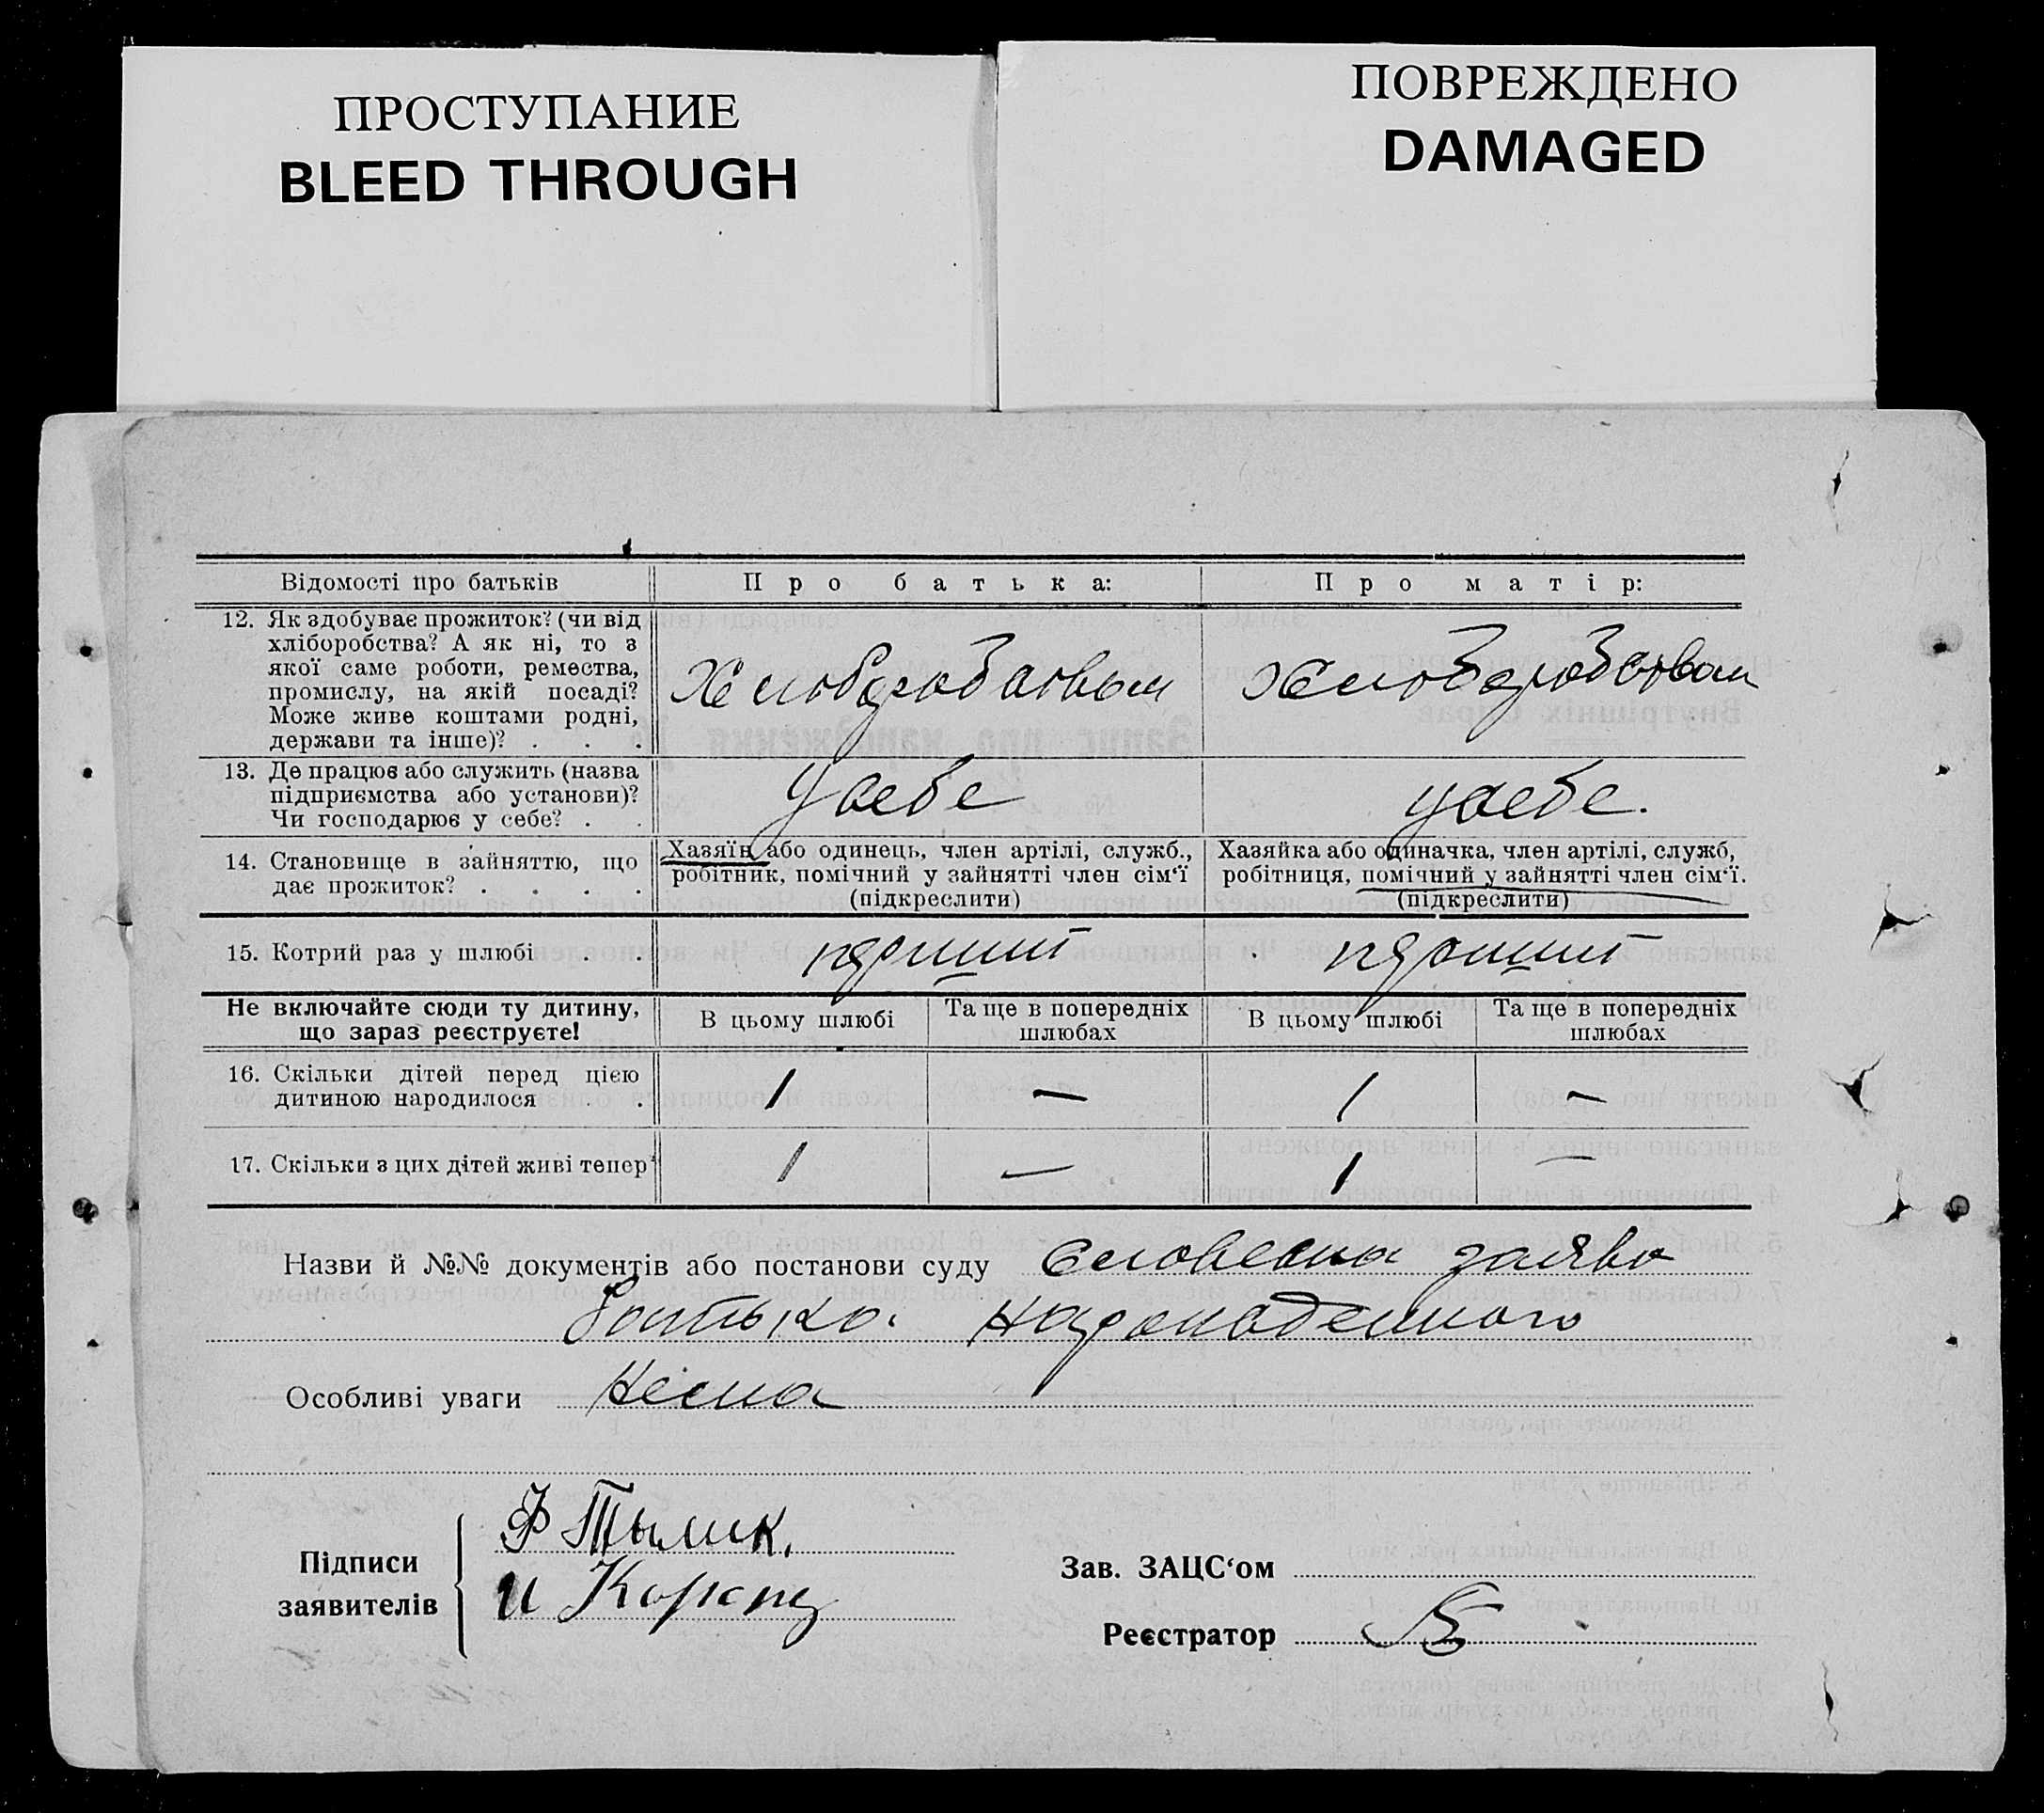 ПРОСТУПАНИЕ
BLEED THROUGH
ПОВРЕЖДЕНО
DAMAGED
Відомості про батьків
Про батька:
Про матір:
12. Як здобуває прожиток? (чи від
хліборобства? А як ні, то з
якої саме роботи, ремества,
промислу, на якій посаді?
Може живе коштами родні,
держави та інше)? . . .
Хлиборобством
Хлиборобством
13. Де працює або служить (назва
підприємства або установи)?
Чи господарює у себе? . .
У себе
у себе.
14. Становище в зайняттю, що
дає прожиток? . . . .
Хазяїн або одинець, член артілі, служб.,
робітник, помічний у зайнятті член сім'ї
(підкреслити)
Хазяйка або одиначка, член артілі, служб,
робітниця, помічний у зайнятті член сім'ї.
(підкреслити)
15. Котрий раз у шлюбі . .
перший
перший
Не включайте сюди ту дитину,
що зараз реєструєте!
В цьому шлюбі
Та ще в попередніх
шлюбах
В цьому шлюбі
Та ще в попередніх
шлюбах
16. Скільки дітей перед цією
дитиною народилося .
1
—
1
—
17. Скільки з цих дітей живі тепер
1
—
1
—
Назви й №№ документів або постанови суду Словесна заява
батька.
Особливі уваги
Підписи
заявителів
Ф Тымик.
И
Зав. ЗАЦС'ом
Реєстратор